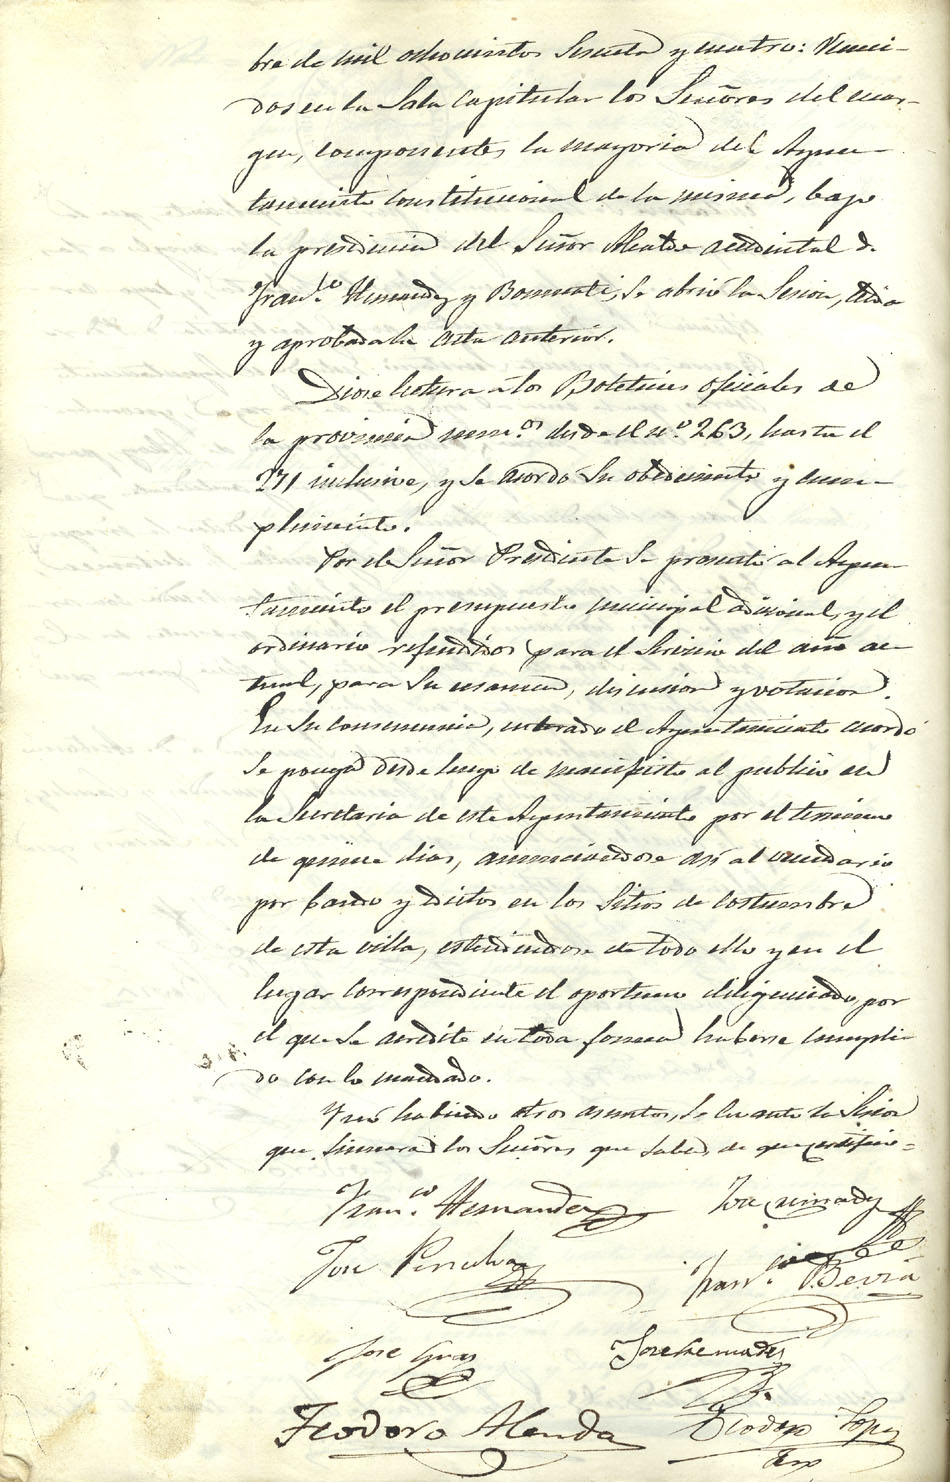 bre de mil ochocientos sesenta y cuatro: Reuni-
dos en la Sala Capitular los Señores del mar-
gen, componentes la mayoria del Ayun-
tamiento Constitucional de la misma, bajo
la presidencia del Señor Alcalde accidental D.
Fran.co Hernandez y Bonmati, se abrió la Sesion, leida
y aprobada la acta anterior.
Diose lectura á los Boletines oficiales de
la provincia num.os desde el n.o 263, hasta el
271 inclusive, y se acordó su obedecimiento y cum-
plimiento.
Por el Señor Presidente se presentó al Ayun-
tamiento el presupuesto municipal adicional, y el
ordinario refundidos para el servicio del año ac-
tual, para su examen, discusion y votacion.
En su consecuencia, enterado el Ayuntamiento acordó
se ponga desde luego de manifiesto al publico en
la Secretaria de este Ayuntamiento por el termino
de quince dias, anunciandose asi al vecindario
por bando y edictos en los Sitios de costumbre
de esta villa, estendiendose de todo ello y en el
lugar correspondiente el oportuno diligenciado, por
el que se acredite en toda forma haberse cumpli-
do con lo mandado.
Y no habiendo otros asuntos, se levantó la Sesion
que firmaran los Señores que saben, de que certifico=
Fran.co Hernandez
José
Fran.co Bevia
José Gras
Jose Hernandez
Teodoro Alenda
Teodoro Lopez